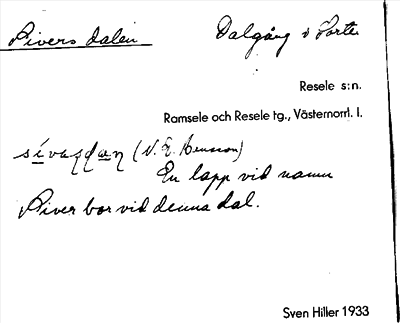 Rivers dalen Dalgång i Forte.
Resele s:n.
Ramsele och Resele tg., Västernorrl. l.
(N. E. Hansson)
En lapp vid namn
River bor vid denna dal.
Sven Hiller 1933